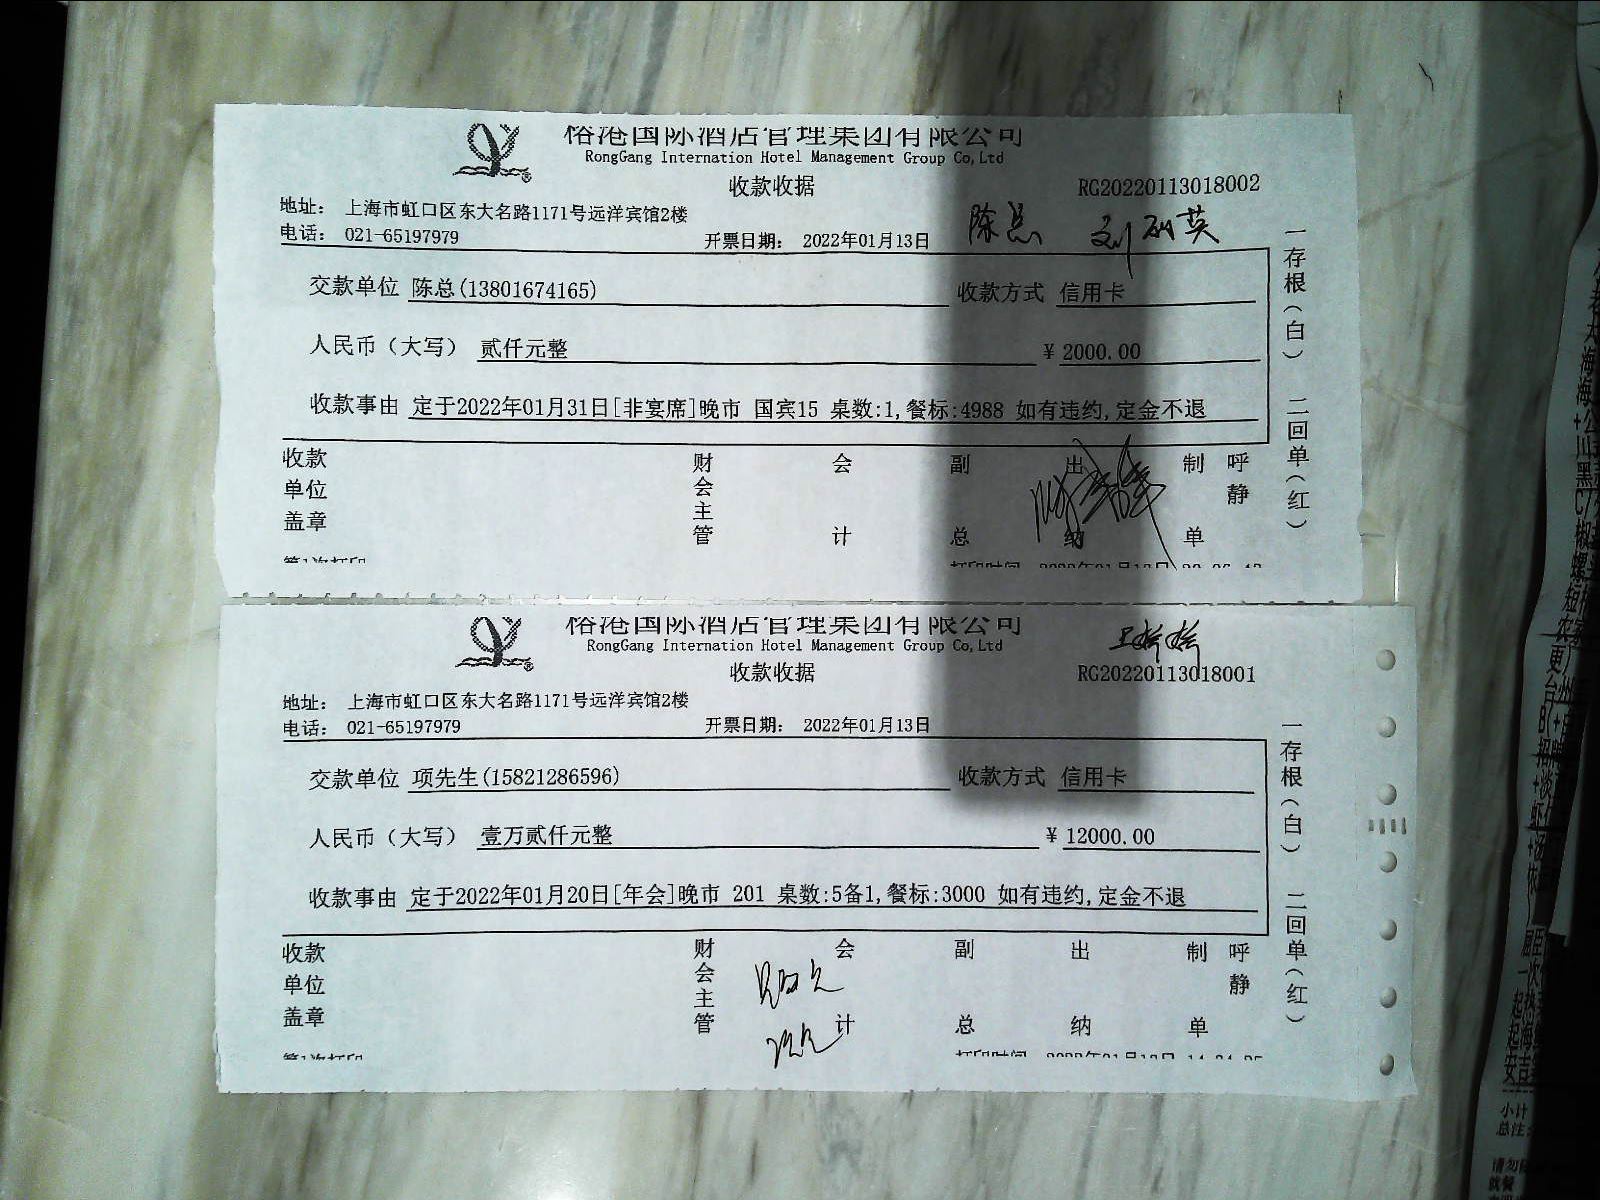 榕港国际酒店管理集团有限公司
RongGang Internation Hotel Management Group Co,Ltd
收款收据
RG20220113018002
地址： 上海市虹口区东大名路1171号远洋宾馆2楼
电话： 021-65197979
开票日期： 2022年01月13日
陈总
交款单位 陈总(13801674165)
收款方式 信用卡
人民币（大写） 贰仟元整
¥ 2000.00
收款事由 定于2022年01月31日[非宴席]晚市 国宾15 桌数:1,餐标:4988 如有违约,定金不退
一存根（白） 二回单（红）
收款单位盖章
财会主管
会计
副总
出纳
制单
呼静
第1次打印
榕港国际酒店管理集团有限公司
RongGang Internation Hotel Management Group Co,Ltd
收款收据
RG20220113018001
地址： 上海市虹口区东大名路1171号远洋宾馆2楼
电话： 021-65197979
开票日期： 2022年01月13日
交款单位 项先生(15821286596)
收款方式 信用卡
人民币（大写） 壹万贰仟元整
¥ 12000.00
收款事由 定于2022年01月20日[年会]晚市 201 桌数:5备1,餐标:3000 如有违约,定金不退
一存根（白） 二回单（红）
收款单位盖章
财会主管
会计
副总
出纳
制单
呼静
第1次打印
小计